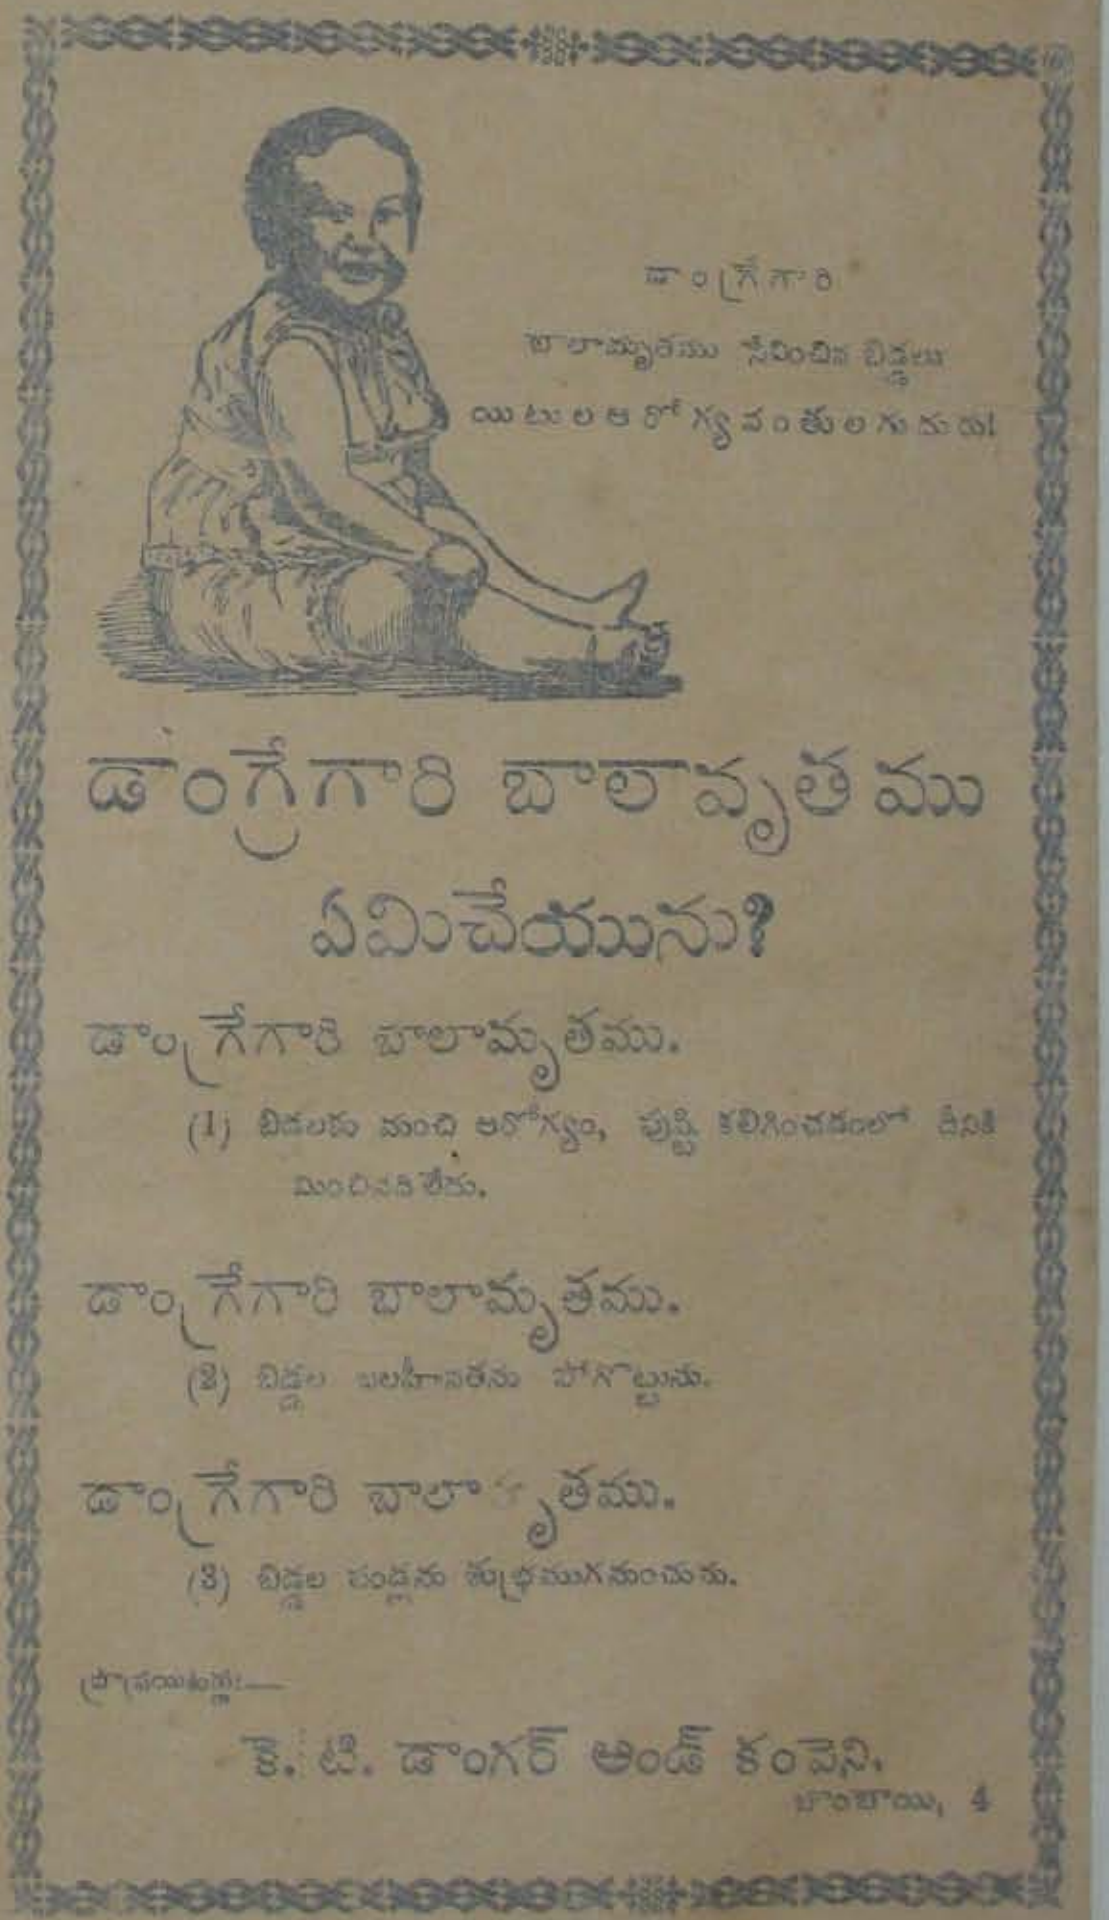 డాంగ్రేగారి
బాలామృతము సేవించిన బిడ్డలు
యిటుల ఆరోగ్యవంతులగుదురు!
డాంగ్రేగారి బాలామృతము
ఏమిచేయును?
డాంగ్రేగారి బాలామృతము.
(1) బిడలకు మంచి ఆరోగ్యం, పుష్టి కలిగించడంలో దీనికి
మించినది లేదు.
డాంగ్రేగారి బాలామృతము.
(2) బిడ్డల బలహీనతను పోగొట్టును.
డాంగ్రేగారి బాలామృతము.
(3) బిడ్డల పండ్లను శుభ్రముగనుంచును.
కె. టి. డాంగర్ అండ్ కంపెని.
బొంబాయి, 4